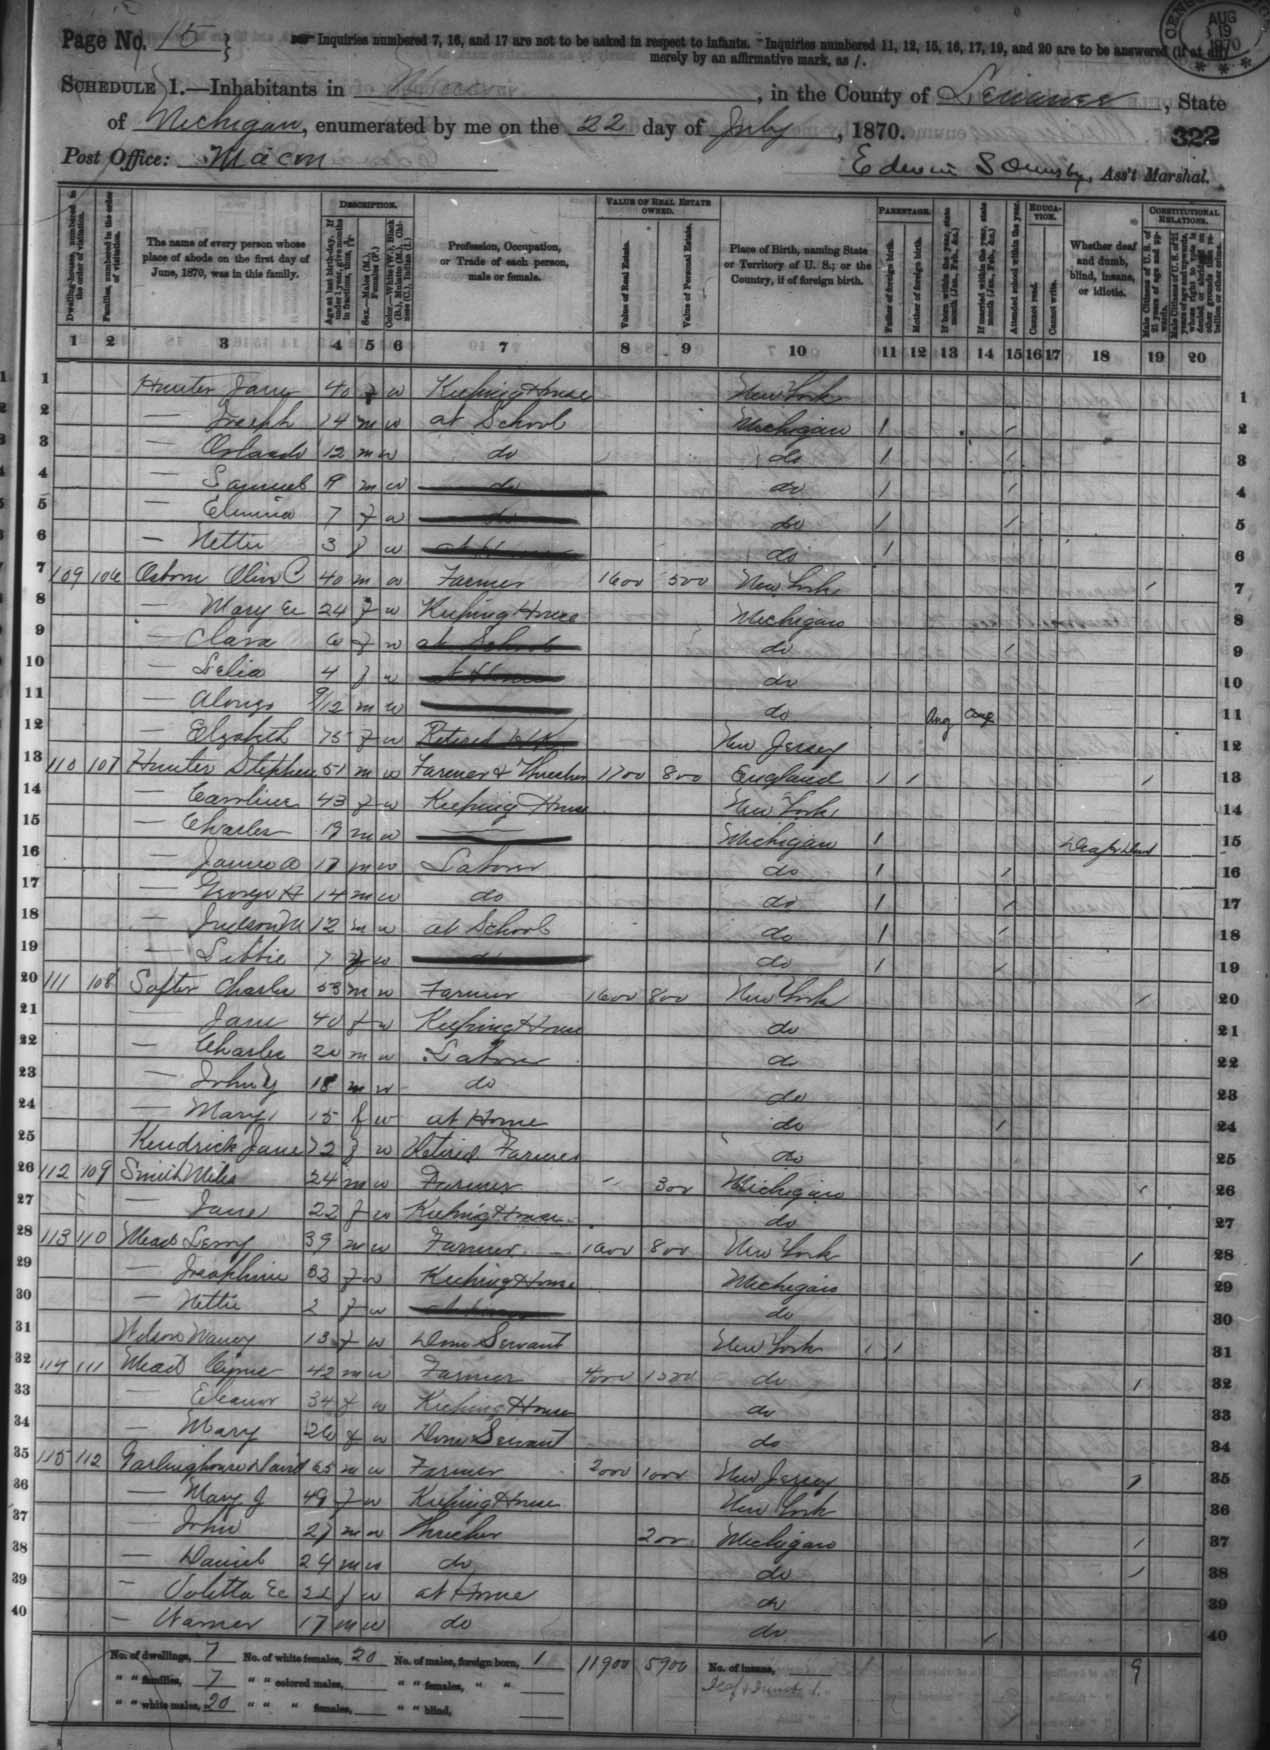 Page No. 15 } Inquiries numbered 7, 16, and 17 are not to be asked in respect to infants. Inquiries numbered 11, 12, 15, 16, 17, 19, and 20 are to be answered (if at all)
merely by an affirmative mark, as /.
AUG 19 1870
SCHEDULE 1.—Inhabitants in Macon, in the County of Lenawee, State
of Michigan, enumerated by me on the 22 day of July, 1870. 322
Post Office: Macon Edwin S Ormsby, Ass't Marshal.
Dwelling-houses, numbered in the order of visitation.
Families, numbered in the order of visitation.
The name of every person whose place of abode on the first day of June, 1870, was in this family.
DESCRIPTION.
Age at last birth-day. If under 1 year, give months in fractions, thus, 3/12
Sex.—Males (M.), Females (F.)
Color.—White (W.), Black (B.), Mulatto (M.), Chinese (C.), Indian (I.)
Profession, Occupation, or Trade of each person, male or female.
VALUE OF REAL ESTATE OWNED.
Value of Real Estate.
Value of Personal Estate.
Place of Birth, naming State or Territory of U. S.; or the Country, if of foreign birth.
PARENTAGE.
Father of foreign birth.
Mother of foreign birth.
If born within the year, state month (Jan., Feb., &c.)
If married within the year, state month (Jan., Feb., &c.)
EDUCATION.
Attended school within the year.
Cannot read.
Cannot write.
Whether deaf and dumb, blind, insane, or idiotic.
CONSTITUTIONAL RELATIONS.
Male Citizens of U. S. of 21 years of age and upwards.
1 2 3 4 5 6 7 8 9 10 11 12 13 14 15 16 17 18 19 20
1 Hunter Jane 40 f w Keeping House New York 1
2 — Joseph 14 m w at School Michigan / / 2
3 — Orlando 12 m w do do / / 3
4 — Samuel 9 m w do do / / 4
5 — Elmina 7 f w do do / / 5
6 — Nettie 3 f w at Home do / 6
7 109 106 Osborn Oliver C 40 m w Farmer 1600 500 New York / 7
8 — Mary E 24 f w Keeping House Michigan 8
9 — Clara 6 f w at School do / 9
10 — Lelia 4 f w at Home do 10
11 — Alonzo 9/12 m w do Aug Aug 11
12 — Elizabeth 75 f w Retired New Jersey 12
13 110 107 Hunter Stephen 51 m w Farmer & Thresher 1700 800 England / / / 13
14 — Caroline 43 f w Keeping House New York 14
15 — Charles 19 m w Michigan / Deaf & Dumb 15
16 — James A 17 m w Laborer do / / 16
17 — George H 14 m w do do / / 17
18 — Judson M 12 m w at School do / / 18
19 — Libbie 7 f w do do / / 19
20 111 108 Softer Charles 53 m w Farmer 1600 800 New York / 20
21 — Jane 40 f w Keeping House do 21
22 — Charles 20 m w Laborer do 22
23 — John Y 18 m w do do 23
24 — Mary 15 f w at Home do / 24
25 Kendrick Jane 72 f w Retired Farmer do 25
26 112 109 Smith Miles 24 m w Farmer 300 Michigan / 26
27 — Jane 22 f w Keeping House do 27
28 113 110 Mead Leroy 39 m w Farmer 1000 800 New York / 28
29 — Josephine 33 f w Keeping House Michigan 29
30 — Nettie 2 f w at Home do 30
31 Wilson Nancy 13 f w Dom Servant New York / / 31
32 114 111 Mead 42 m w Farmer 4000 1500 do / 32
33 — Eleanor 34 f w Keeping House do 33
34 — Mary 26 f w Dom Servant do 34
35 115 112 Garlinghouse David 65 m w Farmer 2000 1000 New Jersey / 35
36 — Mary J 49 f w Keeping House New York 36
37 — John 27 m w Thresher 200 Michigan / 37
38 — Daniel 24 m w do do / 38
39 — Voletta E 22 f w at Home do 39
40 — Warner 17 m w do do / 40
No. of dwellings, 7 No. of white females, 20 No. of males, foreign born, 1 11900 5900 No. of insane, 9
" " families, 7 " " colored males, " " females, " " Deaf & Dumb 1
" " white males, 20 " " " females, " " blind,